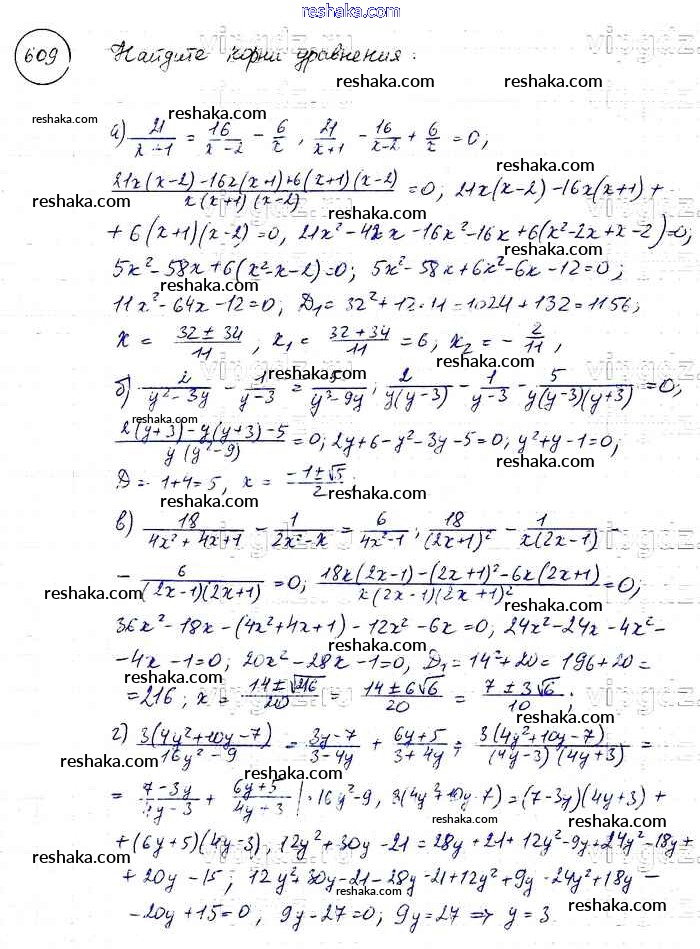 reshaka.com
609 Найдите корни уравнения:
reshaka.com reshaka.com
reshaka.com
а) 21/(x+1) = 16/(x-2) - 6/x, 21/(x+1) - 16/(x-2) + 6/x = 0,
(21x(x-2) - 16x(x+1) + 6(x+1)(x-2))/(x(x+1)(x-2)) = 0, 21x(x-2) - 16x(x+1) +
+ 6(x+1)(x-2) = 0, 21x² - 42x - 16x² - 16x + 6(x² - 2x + x - 2) = 0;
5x² - 58x + 6(x² - x - 2) = 0; 5x² - 58x + 6x² - 6x - 12 = 0;
11x² - 64x - 12 = 0; D₁ = 32² + 12·11 = 1024 + 132 = 1156;
x = (32 ± 34)/11, x₁ = (32 + 34)/11 = 6, x₂ = - 2/11,
б) 2/(y² - 3y) - 1/(y - 3) = 5/(y³ - 9y); 2/(y(y-3)) - 1/(y-3) - 5/(y(y-3)(y+3)) = 0;
(2(y+3) - y(y+3) - 5)/(y(y² - 9)) = 0; 2y + 6 - y² - 3y - 5 = 0; y² + y - 1 = 0;
D = 1 + 4 = 5, x = (-1 ± √5)/2;
в) 18/(4x² + 4x + 1) - 1/(2x² - x) = 6/(4x² - 1); 18/(2x+1)² - 1/(x(2x-1)) -
- 6/((2x-1)(2x+1)) = 0; (18x(2x-1) - (2x+1)² - 6x(2x+1))/(x(2x-1)(2x+1)²) = 0;
36x² - 18x - (4x² + 4x + 1) - 12x² - 6x = 0; 24x² - 24x - 4x² -
- 4x - 1 = 0; 20x² - 28x - 1 = 0; D₁ = 14² + 20 = 196 + 20 =
= 216; x = (14 ± √216)/20 = (14 ± 6√6)/20 = (7 ± 3√6)/10;
г) 3(4y² + 10y - 7)/(16y² - 9) = (3y - 7)/(3 - 4y) + (6y + 5)/(3 + 4y); 3(4y² + 10y - 7)/((4y-3)(4y+3)) =
= (7 - 3y)/(4y - 3) + (6y + 5)/(4y + 3) | · 16y² - 9, 3(4y² + 10y - 7) = (7 - 3y)(4y + 3) +
+ (6y + 5)(4y - 3), 12y² + 30y - 21 = 28y + 21 + 12y² - 9y + 24y² - 18y +
+ 20y - 15; 12y² + 30y - 21 - 28y - 21 + 12y² + 9y - 24y² + 18y -
- 20y + 15 = 0, 9y - 27 = 0; 9y = 27 ⇒ y = 3.
reshaka.com